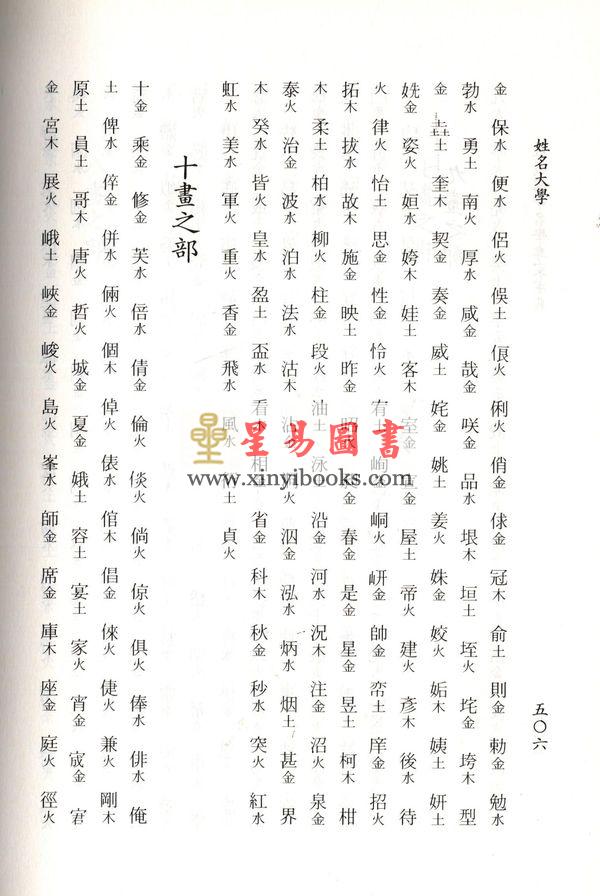 姓名大學
五〇六
金 保水 便水 侶火 俁土 俍火 俐火 俏金 俅金 冠木 俞土 則金 勅金 勉水
勃水 勇土 南火 厚水 咸金 哉金 咲金 品水 垠木 垣土 垤火 垞金 垮木 型
金 垚土 奎木 契金 奏金 威土 姹金 姚土 姜火 姝金 姣火 姤木 姨土 妍土
姺金 姿火 姮水 姱木 娃土 客木 室金 宣金 屋土 帝火 建火 彥木 後水 待
火 律火 怡土 思金 性金 怜火 宥土 峋金 峒火 岍金 帥金 帟土 庠金 招火
拓木 拔水 故木 施金 映土 昨金 昭 春金 是金 星金 昱土 柯木 柑
木 柔土 柏水 柳火 柱金 段火 油土 泳水 沿金 河水 況木 注金 沼火 泉金
泰火 治金 波水 泊水 法水 沽木 沾 泅金 泓水 炳水 烟土 甚金 界
木 癸水 皆火 皇水 盈土 盃水 看木 相 省金 科木 秋金 秒水 突火 紅水
虹水 美水 軍火 重火 香金 飛水 風水 土 貞火
十畫之部
十金 乘金 修金 芙水 倍水 倩金 倫火 倓火 倘火 倞火 俱火 俸水 俳水 俺
土 俾水 倅金 併水 倆火 個木 倬火 俵水 倌木 倡金 倈火 倢火 兼火 剛木
原土 員土 哥木 唐火 哲火 城金 夏金 娥木 容土 宴土 家火 宵金 宬金
金 宮木 展火 峨土 峽金 峻火 島火 峯水 師金 席金 庫木 座金 庭火 徑火
星易圖書
www.xinyibooks.com